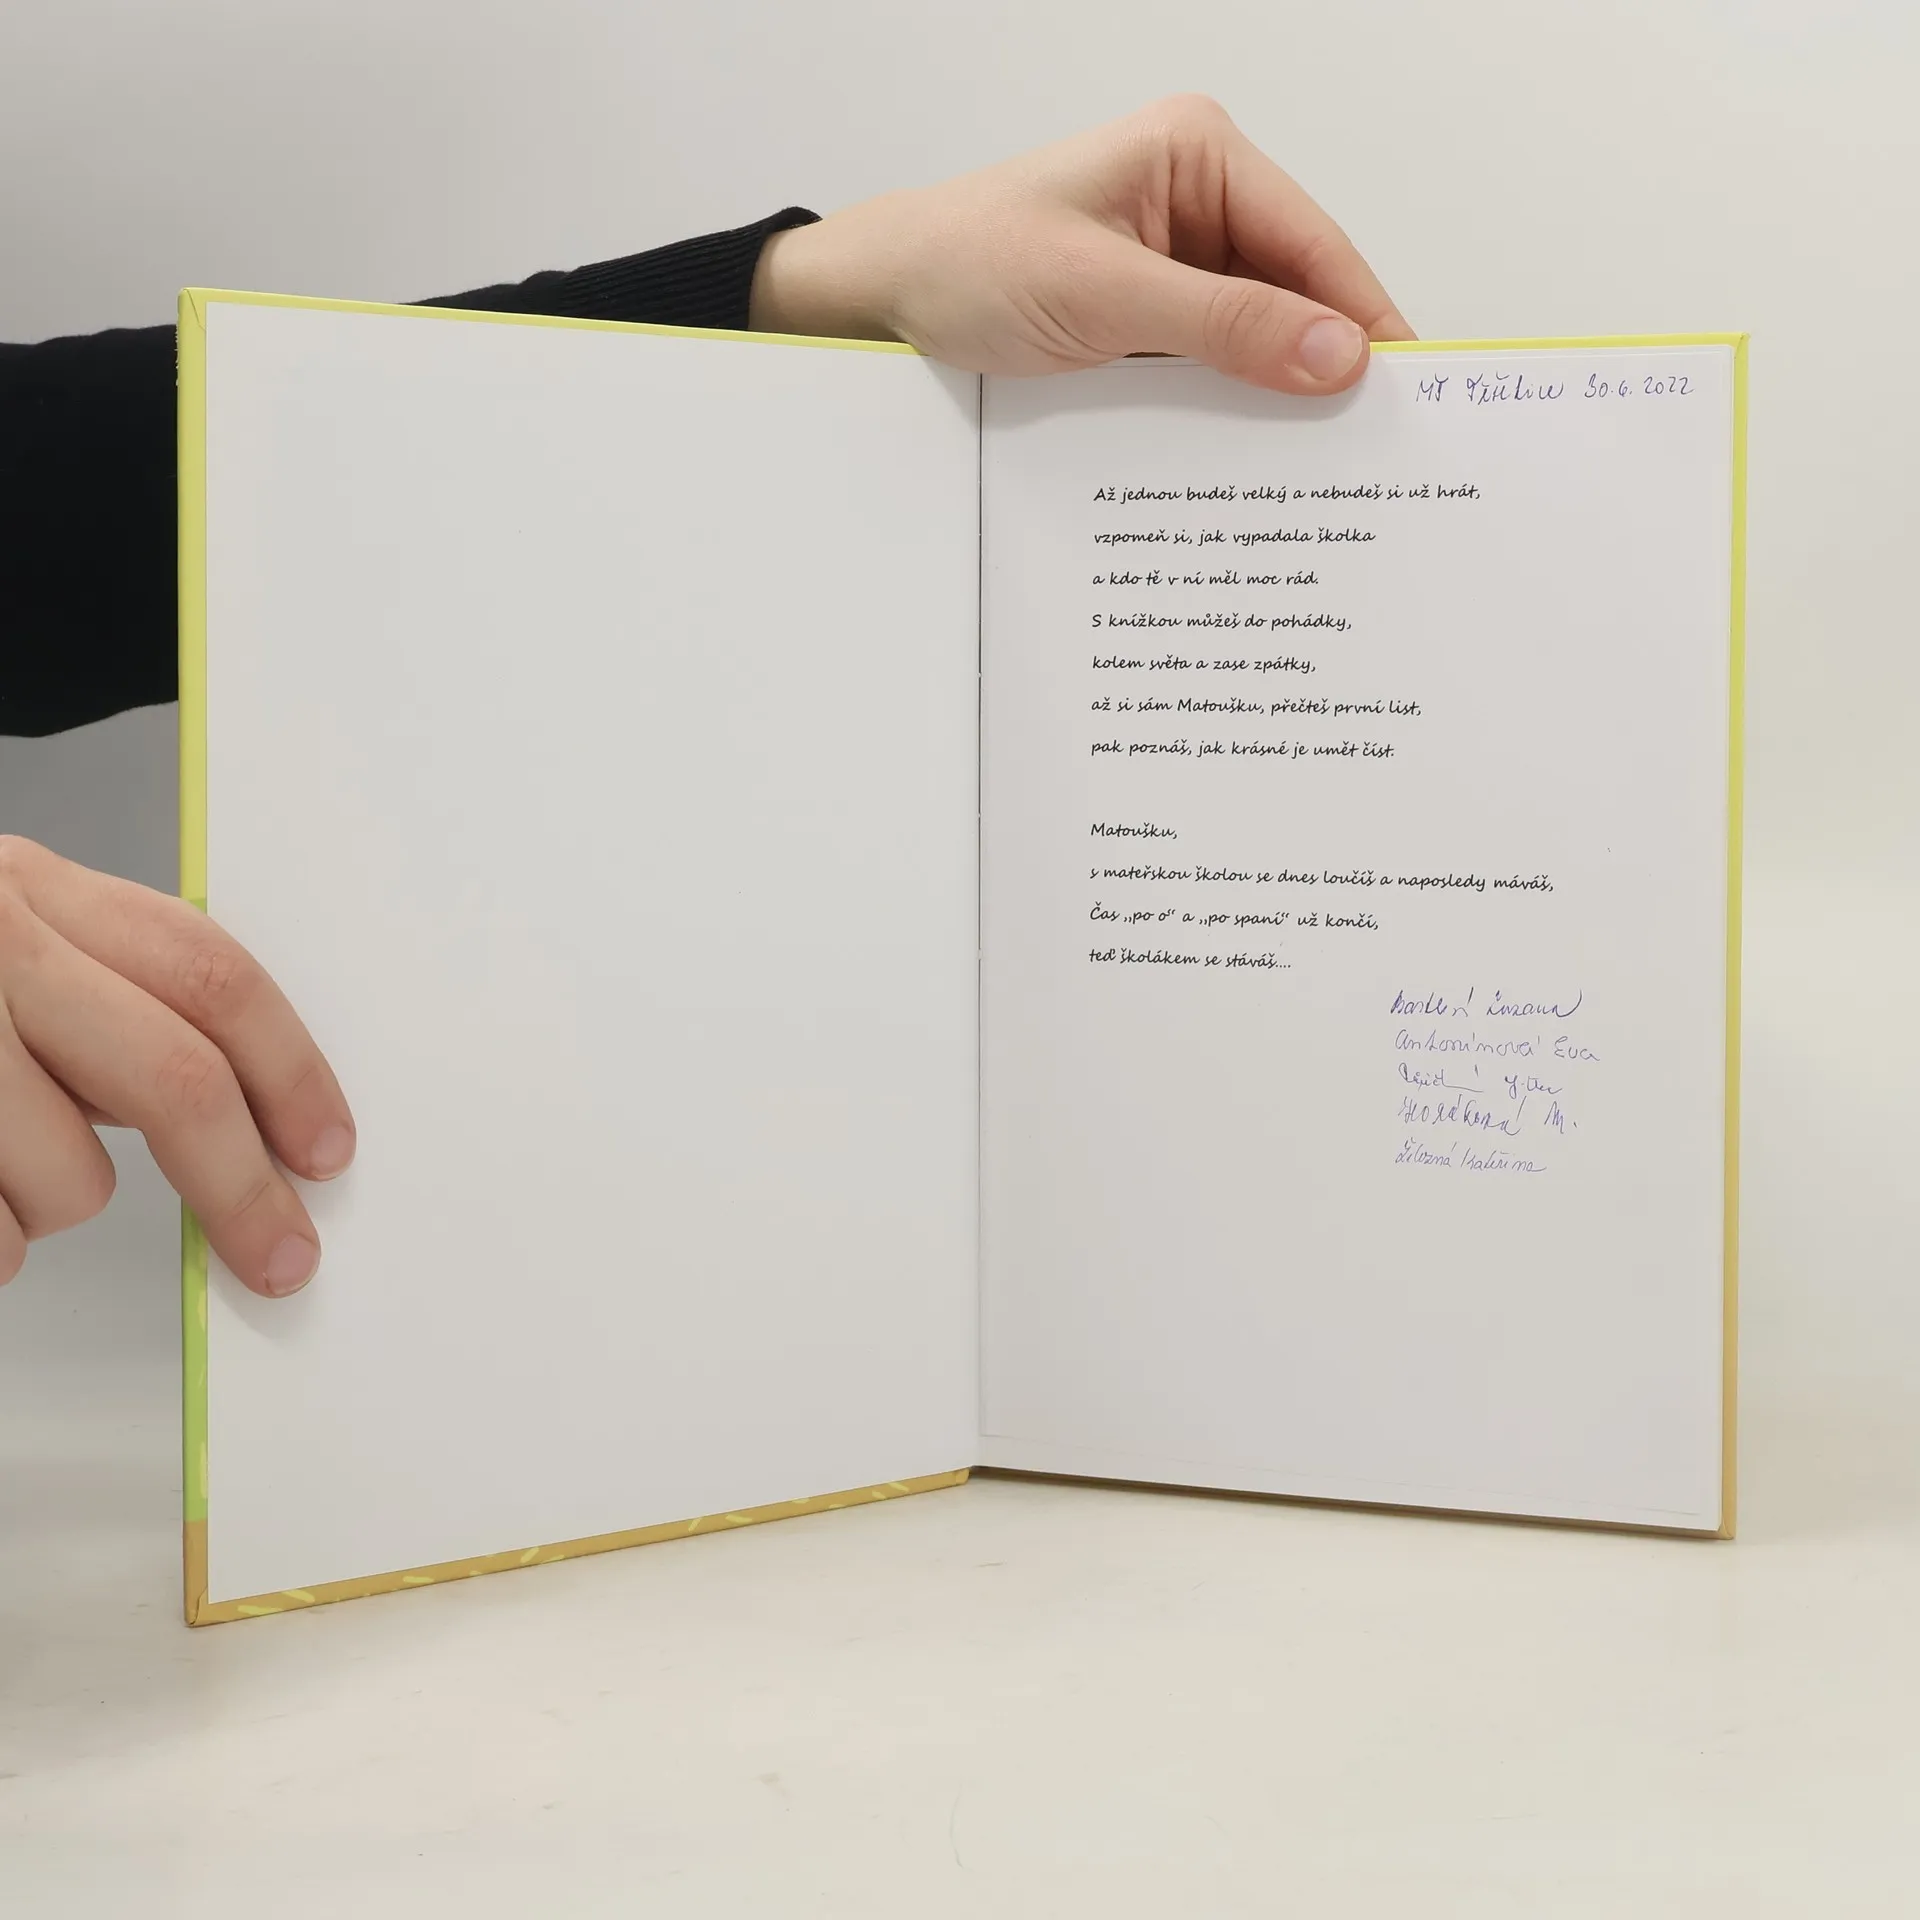 MŠ Těšetice 30.6.2022
Až jednou budeš velký a nebudeš si už hrát,
vzpomeň si, jak vypadala školka
a kdo tě v ní měl moc rád.
S knížkou můžeš do pohádky,
kolem světa a zase zpátky,
až si sám Matoušku, přečteš první list,
pak poznáš, jak krásné je umět číst.
Matoušku,
s mateřskou školou se dnes loučíš a naposledy máváš,
Čas „po o“ a „po spaní“ už končí,
teď školákem se stáváš....
Zuzana
Antonínová Eva
Horáková M.
Železná Kateřina